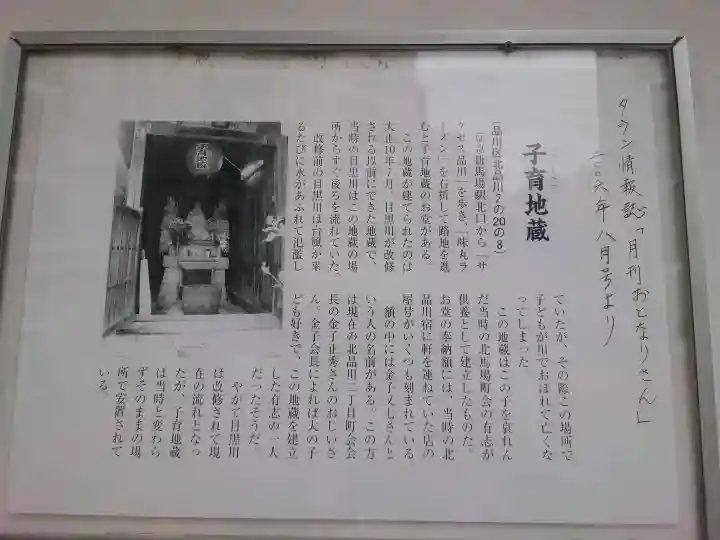 タウン情報誌「月刊おとなりさん」
二〇〇六年 八月号より
子育地蔵
(品川区北品川2の20の8)
京急新馬場駅北口から「サ
クセス品川」を歩き、「一味丸ラ
ーメン」を右折して路地を進
むと子育地蔵のお堂がある。
この地蔵が建てられたのは
大正10年7月。目黒川が改修
される以前にできた地蔵で、
当時の目黒川はこの地蔵の場
所からすぐ後ろを流れていた。
改修前の目黒川は台風が来
るたびに水があふれて氾濫し
ていたが、その際この場所で
子どもが川でおぼれて亡くな
ってしまった。
この地蔵はこの子を哀れん
だ当時の北馬場町会の有志が
供養として建立したものだ。
お堂の奉納額には、当時の北
品川宿に軒を連ねていた店の
屋号がいくつも刻まれている。
額の中には金子〆しさんと
いう人の名前がある。この方
は現在の北品川二丁目町会会
長の金子正秀さんのおじいさ
ん。金子会長によれば大の子
ども好きで、この地蔵を建立
した有志の一人
だったそうだ。
やがて目黒川
は改修されて現
在の流れとなっ
たが、子育地蔵
は当時と変わら
ずそのままの場
所で安置されて
いる。
子育地蔵